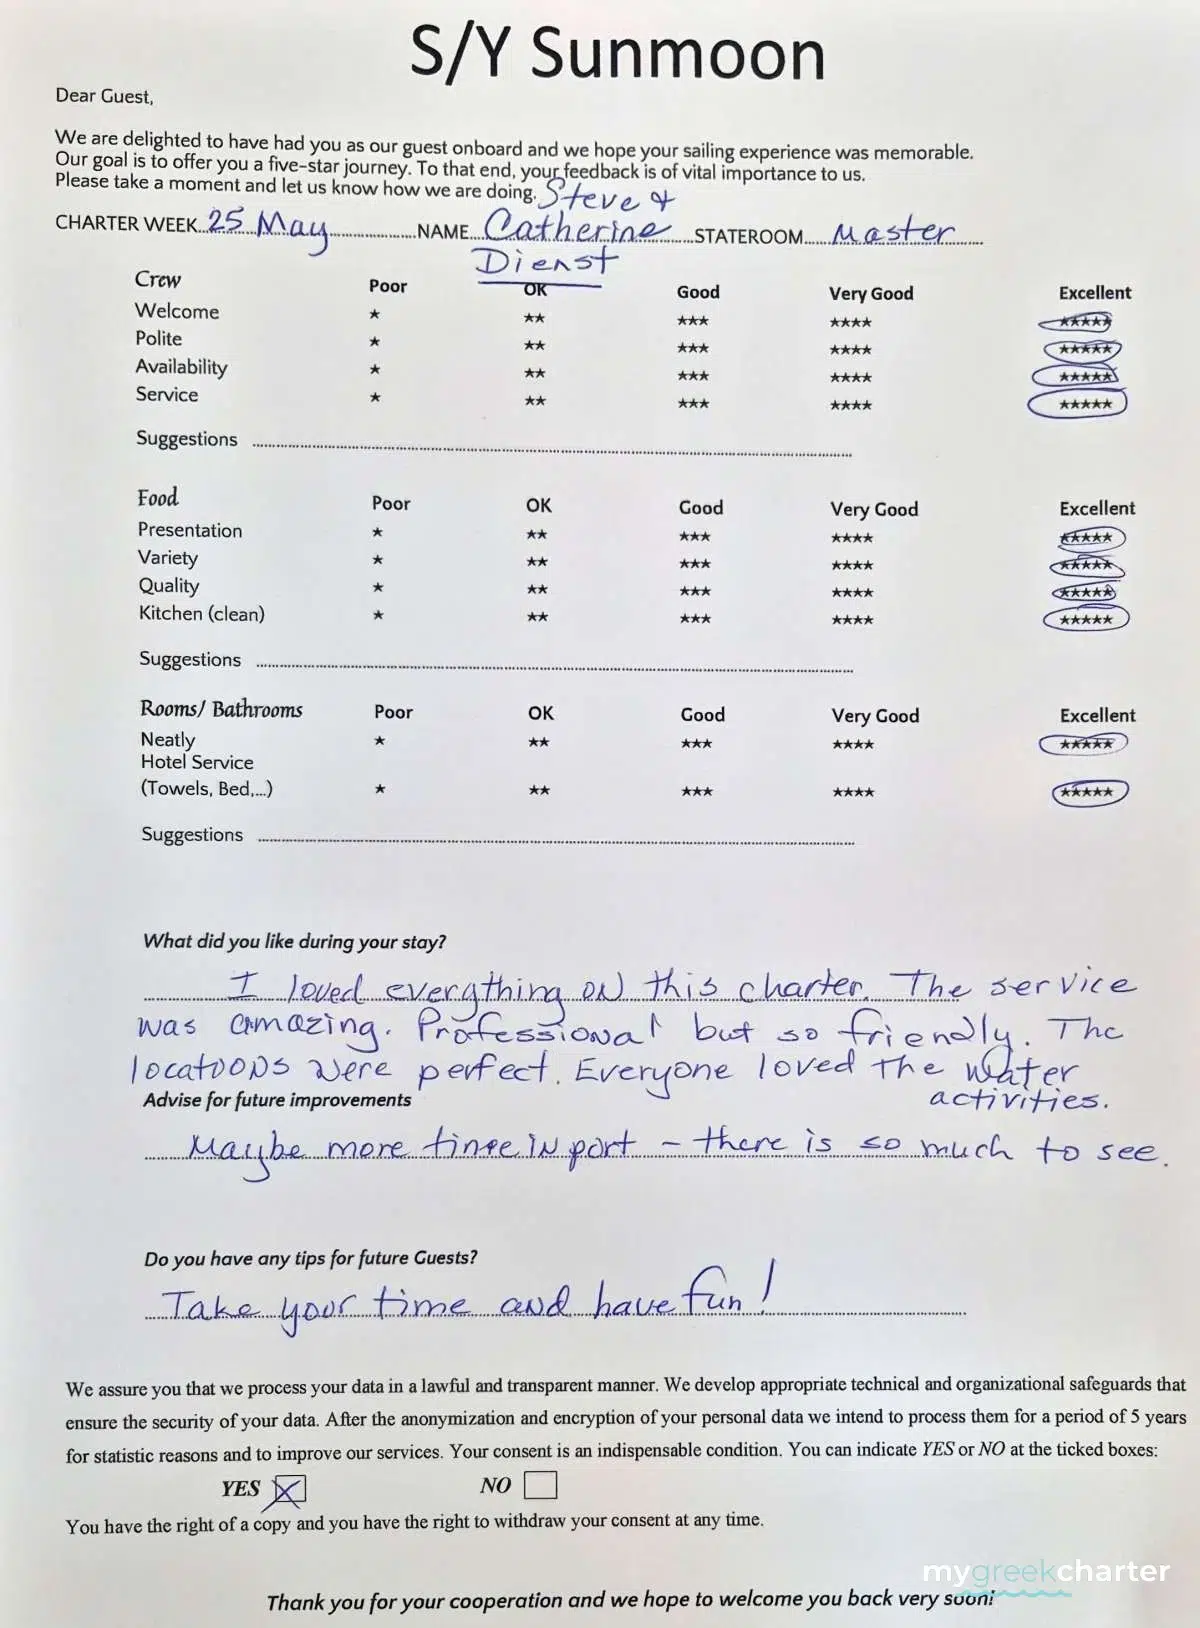 S/Y Sunmoon
Dear Guest,
We are delighted to have had you as our guest onboard and we hope your sailing experience was memorable.
Our goal is to offer you a five-star journey. To that end, your feedback is of vital importance to us.
Please take a moment and let us know how we are doing.
Steve &
CHARTER WEEK 25 May NAME Catherine STATEROOM Master
Dienst
Crew Poor OK Good Very Good Excellent
Welcome ★ ★★ ★★★ ★★★★ ★★★★★
Polite ★ ★★ ★★★ ★★★★ ★★★★★
Availability ★ ★★ ★★★ ★★★★ ★★★★★
Service ★ ★★ ★★★ ★★★★ ★★★★★
Suggestions
Food Poor OK Good Very Good Excellent
Presentation ★ ★★ ★★★ ★★★★ ★★★★★
Variety ★ ★★ ★★★ ★★★★ ★★★★★
Quality ★ ★★ ★★★ ★★★★ ★★★★★
Kitchen (clean) ★ ★★ ★★★ ★★★★ ★★★★★
Suggestions
Rooms/ Bathrooms Poor OK Good Very Good Excellent
Neatly ★ ★★ ★★★ ★★★★ ★★★★★
Hotel Service
(Towels, Bed,...) ★ ★★ ★★★ ★★★★ ★★★★★
Suggestions
What did you like during your stay?
I loved everything on this charter. The service
was amazing. Professional but so friendly. The
locations were perfect. Everyone loved the water
activities.
Advise for future improvements
Maybe more time in port - there is so much to see.
Do you have any tips for future Guests?
Take your time and have fun!
We assure you that we process your data in a lawful and transparent manner. We develop appropriate technical and organizational safeguards that
ensure the security of your data. After the anonymization and encryption of your personal data we intend to process them for a period of 5 years
for statistic reasons and to improve our services. Your consent is an indispensable condition. You can indicate YES or NO at the ticked boxes:
YES NO
You have the right of a copy and you have the right to withdraw your consent at any time.
mygreekcharter
Thank you for your cooperation and we hope to welcome you back very soon!